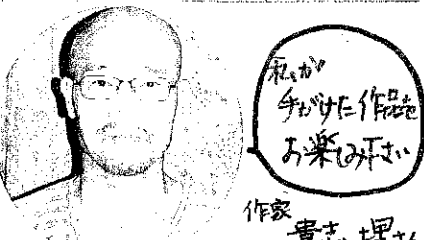 私が
手がけた作品を
お楽しみ下さい
作家
さん